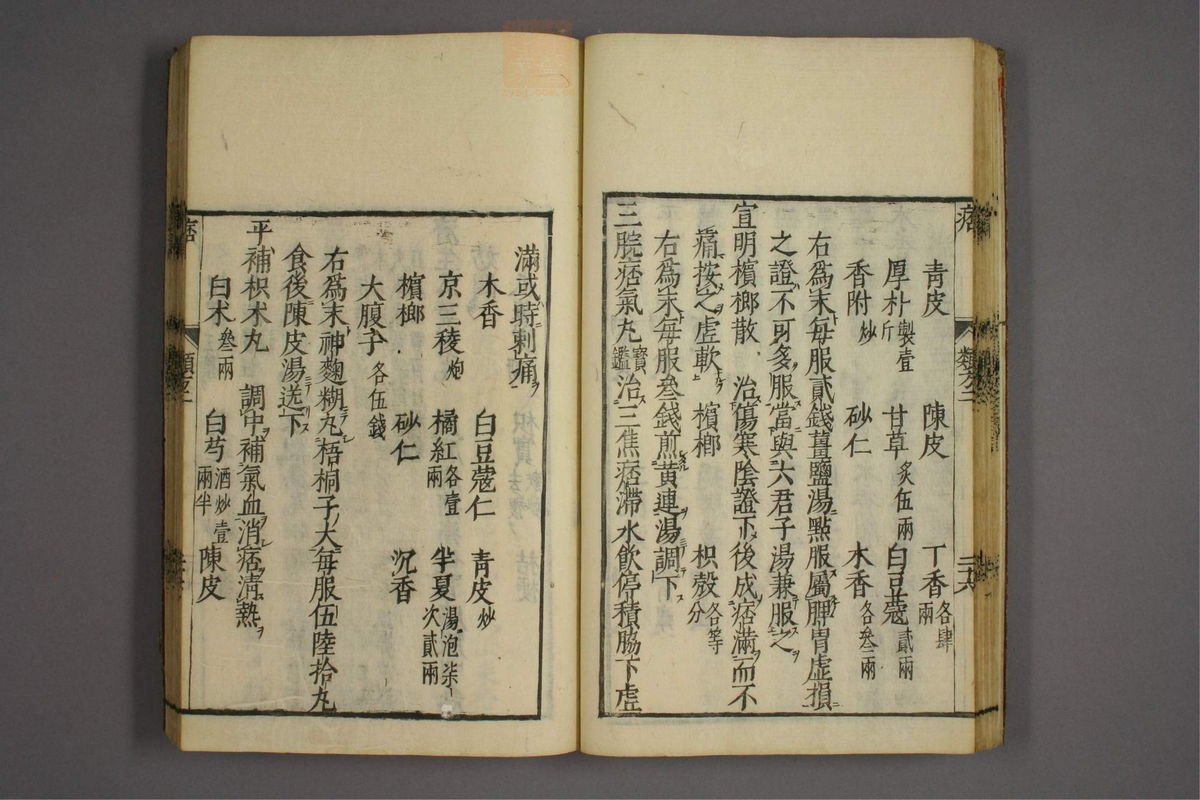 青皮　陳皮　丁香各肆兩
厚朴製壹斤　甘草炙伍兩　白豆蔻貳兩
香附炒　砂仁　木香各叁兩
右爲末每服貳錢薑鹽湯點服屬脾胃虛損
之證不可多服當與六君子湯兼服之
宣明檳榔散　治傷寒陰證下後成痞滿而不
痛按之虛軟　檳榔　枳殼各等分
右爲末每服叁錢煎黃連湯調下
三脘痞氣丸寶鑑　治三焦痞滯水飮停積脇下虛
痞　類方二
滿或時刺痛
木香　白豆蔻仁　青皮炒
京三稜炮　橘紅各壹兩　半夏湯泡柒次貳兩
檳榔　砂仁　沉香
大腹子各伍錢
右爲末神麴糊丸梧桐子大每服伍陸拾丸
食後陳皮湯送下
平補枳朮丸　調中補氣血消痞淸熱
白朮叁兩　白芍酒炒壹兩半　陳皮
痞　類方二